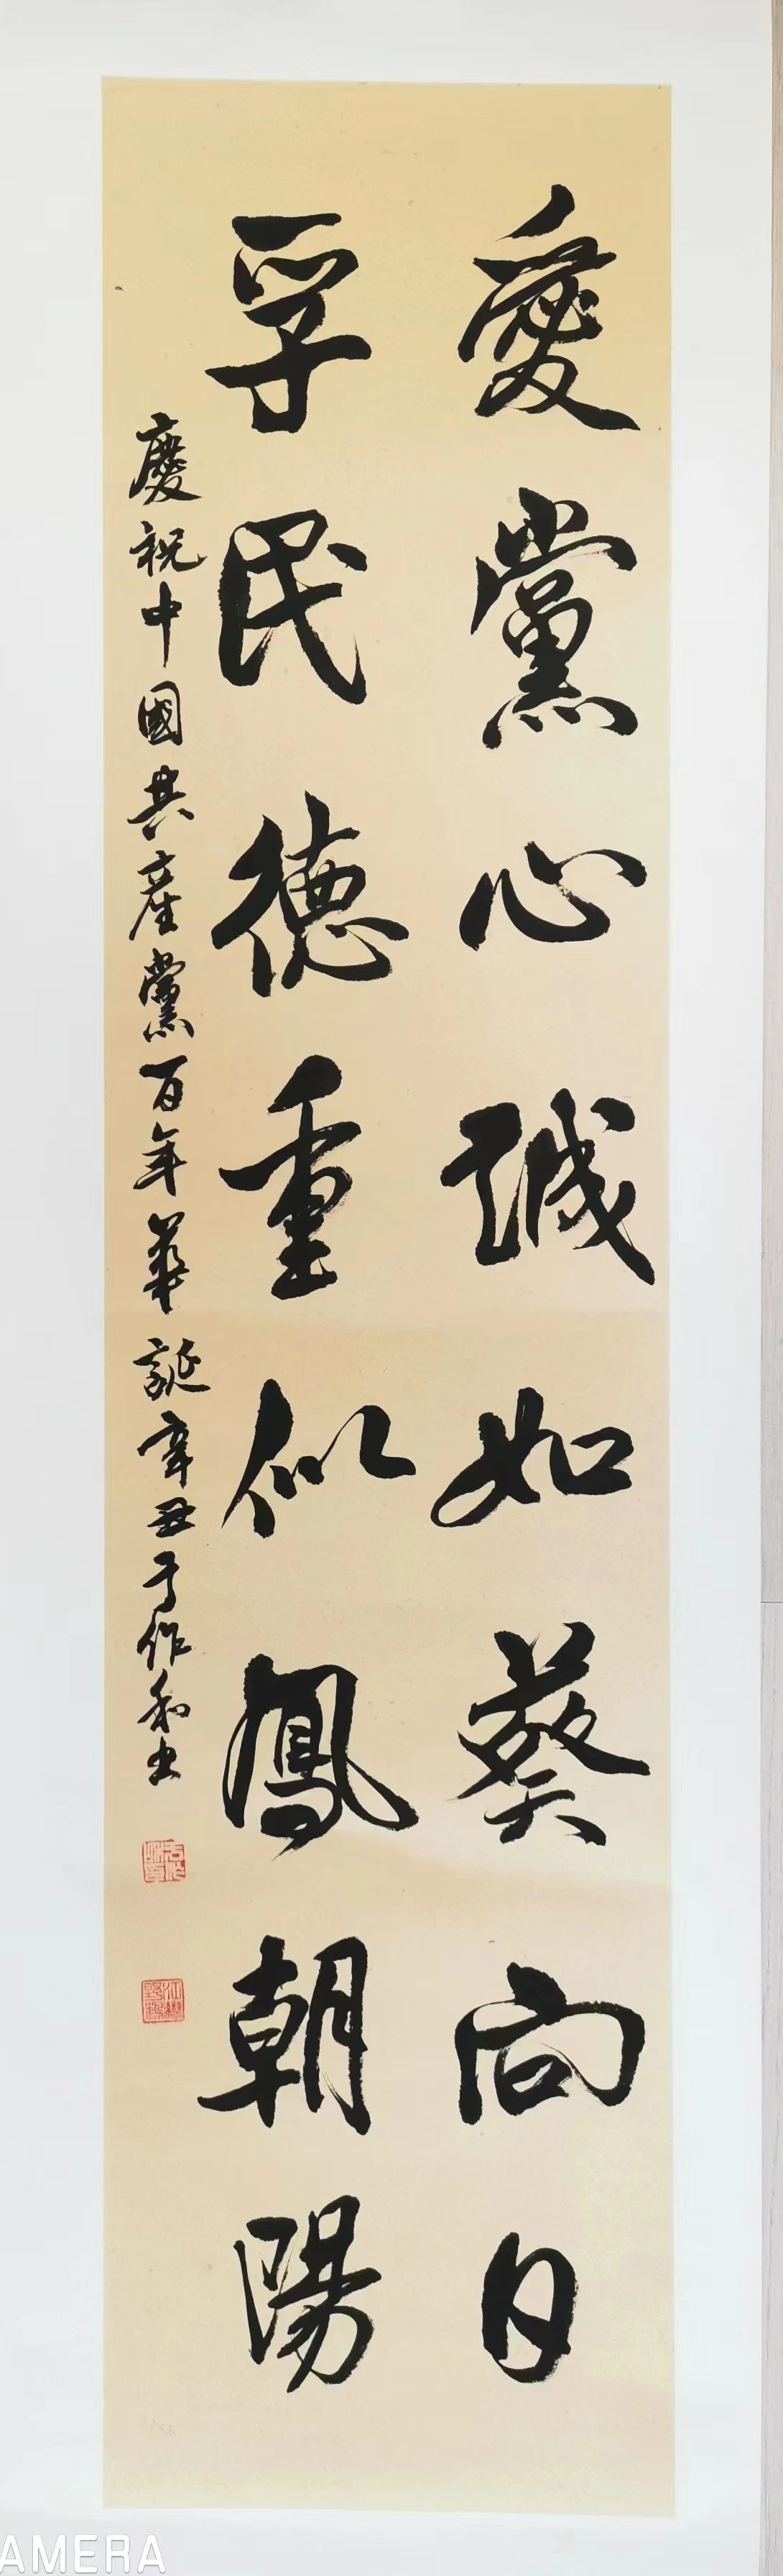 愛黨心誠如葵向日
孚民德重似鳳朝陽
慶祝中國共産黨百年華誕辛丑于作和书
AMERA